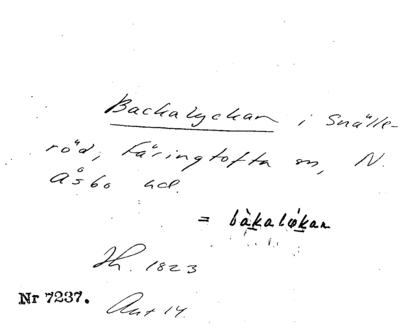 Backalyckan i Snälle-
röd, Färingtofta sn, N.
Åsbo hd.
= bàkalykan
Jh. 1823
Nr 7237. Ant 14.